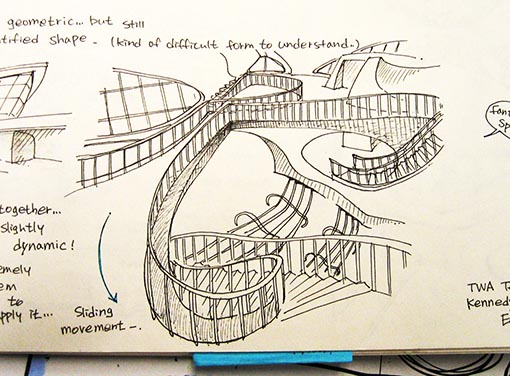 geometric... but still
ntified shape - (kind of difficult form to understand.)
together...
slightly
dynamic!
emely
em
to
pply it...
Sliding
movement -.
Fant
Sp
TWA T
Kennedy
E